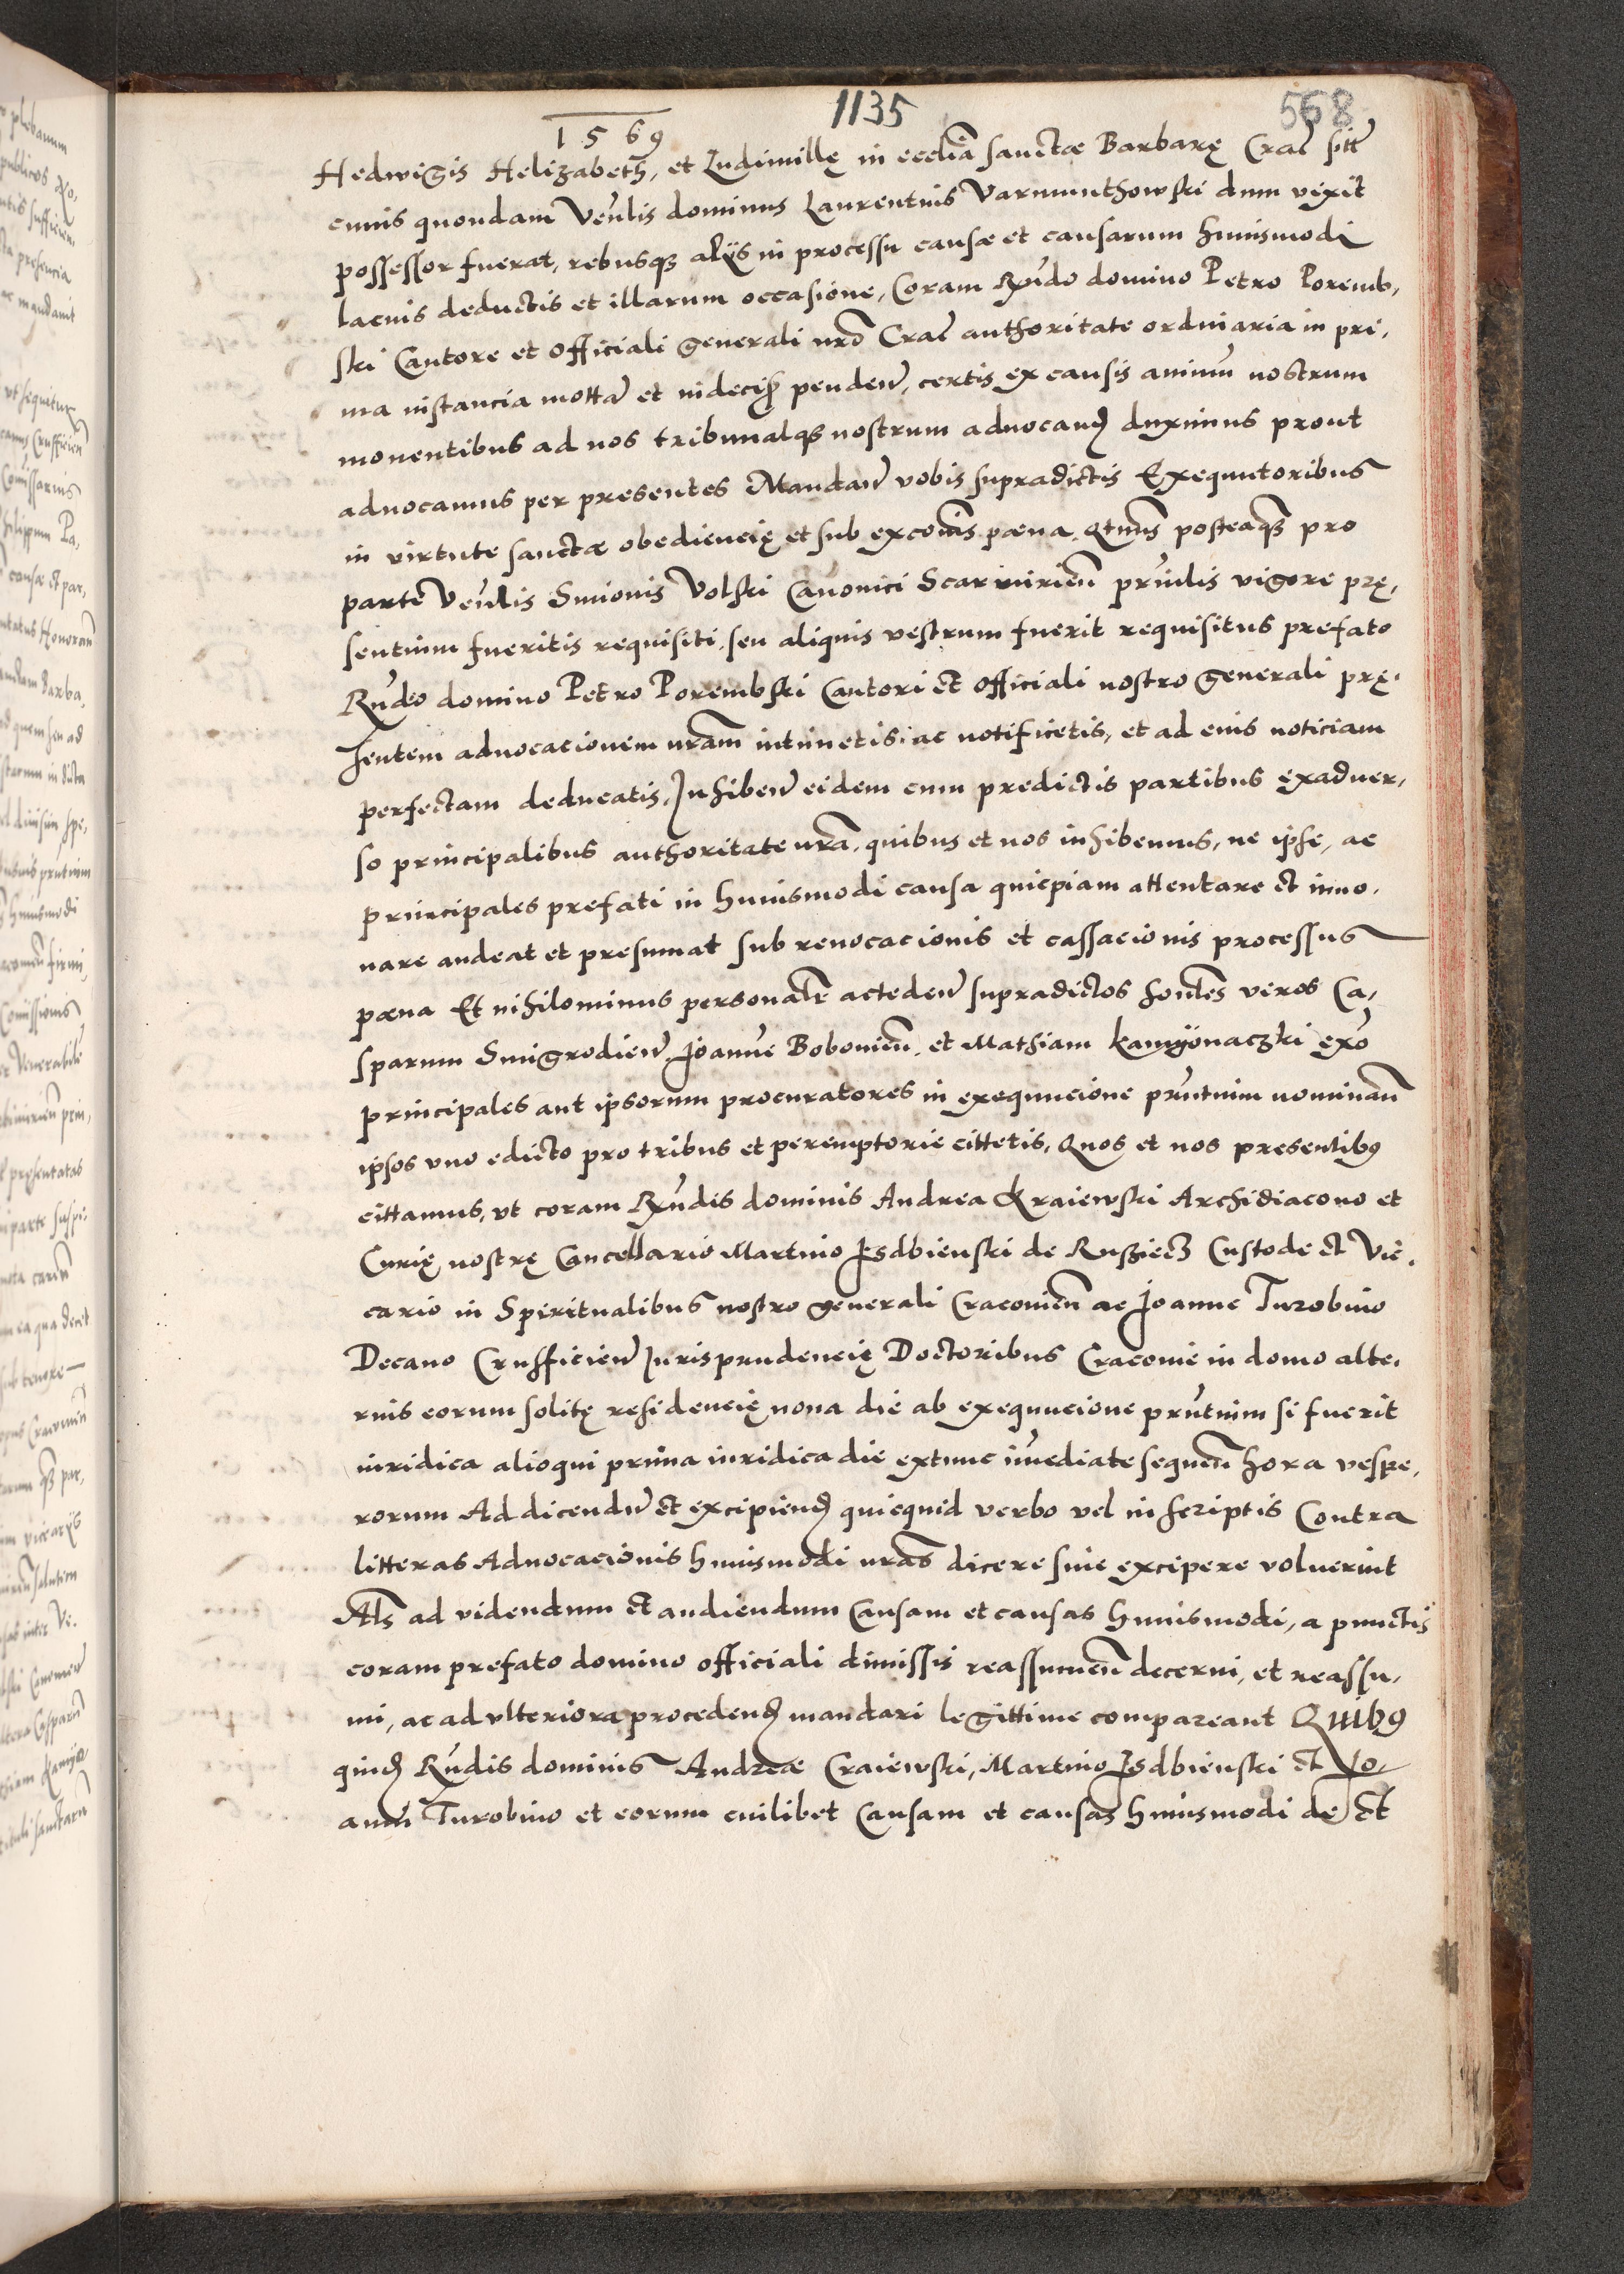 1135
568
1569
Hedwigis Helizabeth, et Ludimillę in ecclīa sanctæ Barbarę Crac̄ sitt̄
cuius quondam Ven̄lis dominus Laurentius Varmunthowski dum vixit
possessor fuerat, rebusq3 aliis in processu causæ et causarum huiusmodi
lacius deductis et illarum occasione, Coram Rn̄do domino Petro Poremb,
ski Cantore et Officiali generali nr̄o Crac̄ authoritate ordinaria in pri,
ma instancia mottā et indecis̄ penden̄, certis ex causis animū nostrum
mouentibus ad nos tribunalq3 nostrum aduocand̄ duximus prout
aduocamus per presentes Mandan̄ vobis supradictis Exequutoribus
in virtute sanctæ obediencię et sub excōis pæna, Qtn̄s posteaq3 pro
parte Ven̄lis Simonis Volski Canonici Scarmirien̄ prin̄lis vigore prę,
sentium fueritis requisiti, seu aliquis vestrum fuerit requisitus prefato
Rn̄do domino Petro Porembski Cantori et Officiali nostro generali prę,
sentem aduocacionem nr̄am intimetis, ac notificetis, et ad eius noticiam
perfectam deducatis, Inhiben̄ eidem cum predictis partibus exaduer,
so principalibus authoritate nr̄a, quibus et nos inhibemus, ne ipse, ac
principales prefati in huiusmodi causa quicpiam attentare et inno,
uare audeat et presumat sub reuocacionis et cassacionis processus
pæna Et nihilominus personalr̄ acteden̄ supradictos hon̄les viros Ca,
sparum Smigrodien̄, Joannē Bobouien̄, et Mathiam Kamÿonaczki exō
principales aut ipsorum procuratores in exequucione prn̄tium nominan̄
ipsos vno edicto pro tribus et peremptorie cittetis, Quos et nos presentibꝰ
cittamus, vt coram Rn̄dis dominis Andrea Kraiewski Archidiacono et
Curię nostrę Cancellario Martino Isdbienski de Rusziecz Custode et Vic,
cario in Spiritualibus nostro generali Cracouien̄ ac Joanne Turobino
Decano Crusfficien̄ Jurisprudencię Doctoribus Cracouie in domo alte,
rius eorum solitę residencię nona die ab exequucione prn̄tium si fuerit
iuridica alioqui prima iuridica die extunc im̄ediate sequen̄ hora vespe,
rorum Ad dicendū et excipiend̄ quicquid verbo vel in scriptis Contra
litteras Aduocacionis huiusmodi nr̄as dicere siue excipere voluerint
Als̄ ad videndum et audiendum Causam et causas huiusmodi, a punctis
coram prefato domino officiali dimissis reassumen̄ decerni, et reassu,
mi, ac ad vlteriora procedend̄ mandari legittime compareant Quibꝰ
quid̄ Rn̄dis dominis Andreæ Craiewski, Martino Isdbienski et Jo,
anni Turobino et eorum cuilibet Causam et causas huiusmodi de et